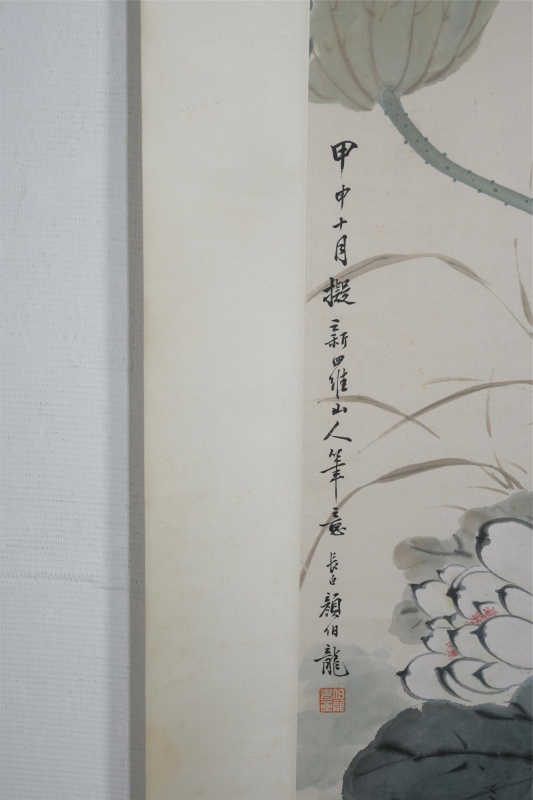 甲申十月擬新羅山人筆意長白顏伯龍